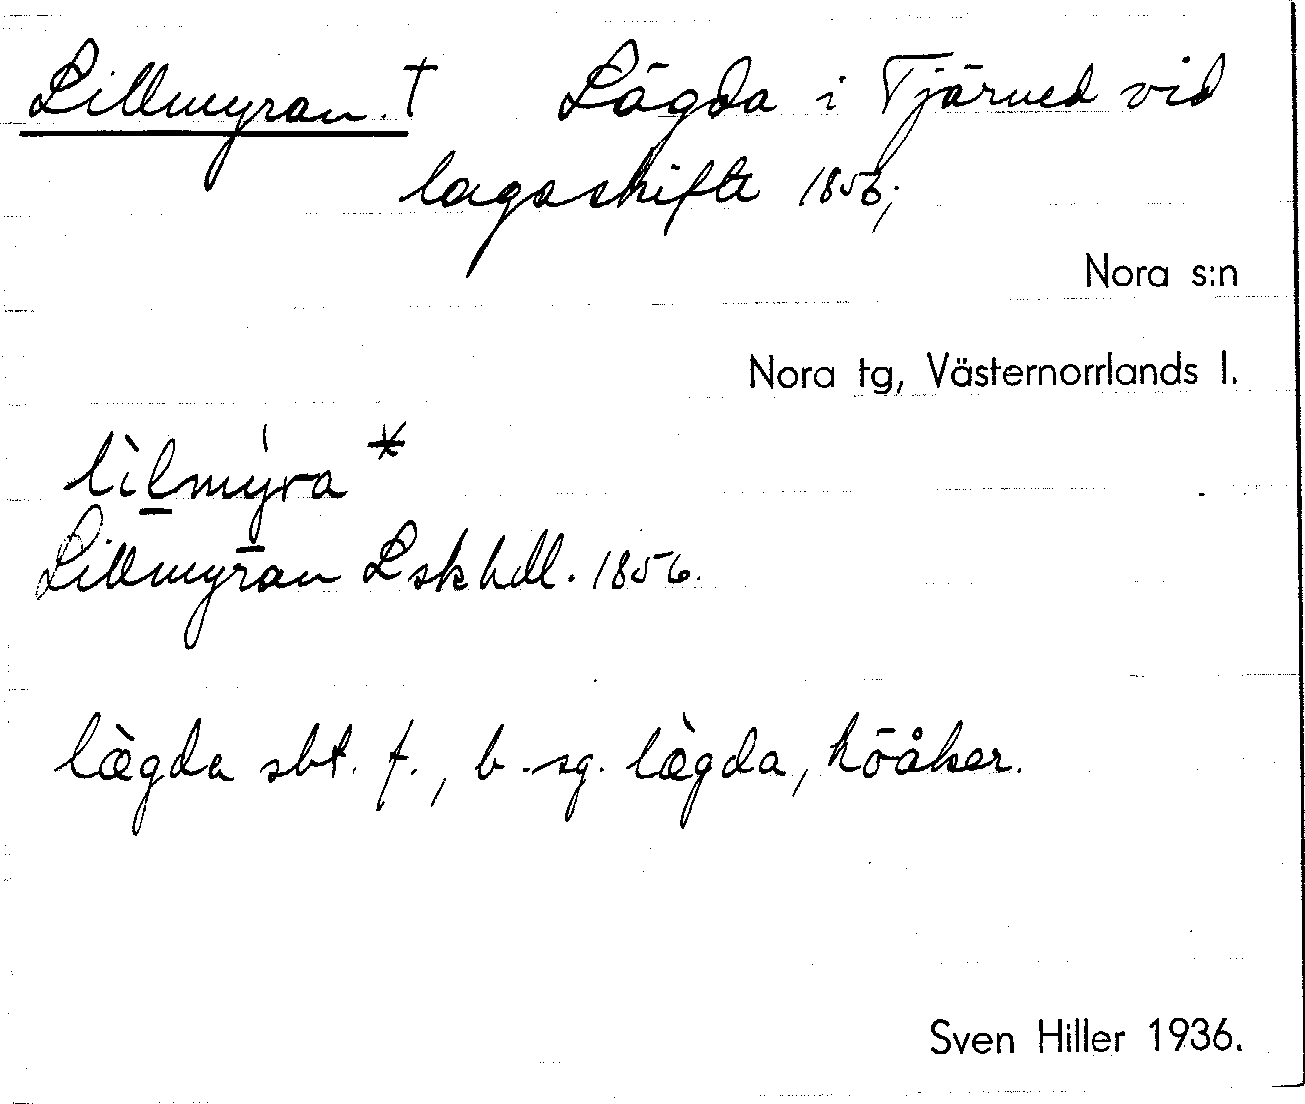 Lillmyran. † Lägda i Tjärned vid
lagaskifte 1856;
Nora s:n
Nora tg, Västernorrlands l.
lìlmýra *
Lillmyran Lskhdl. 1856.
lægda sbt. f., b. sg. lægda, höåker.
Sven Hiller 1936.